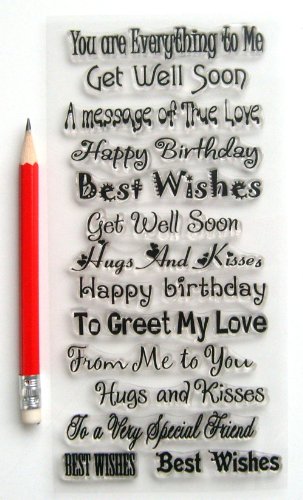 You are Everything to Me
Get Well Soon
A message of True Love
Happy Birthday
Best Wishes
Get Well Soon
Hugs And Kisses
Happy birthday
To Greet My Love
From Me to You
Hugs and Kisses
To a Very Special Friend
BEST WISHES Best Wishes